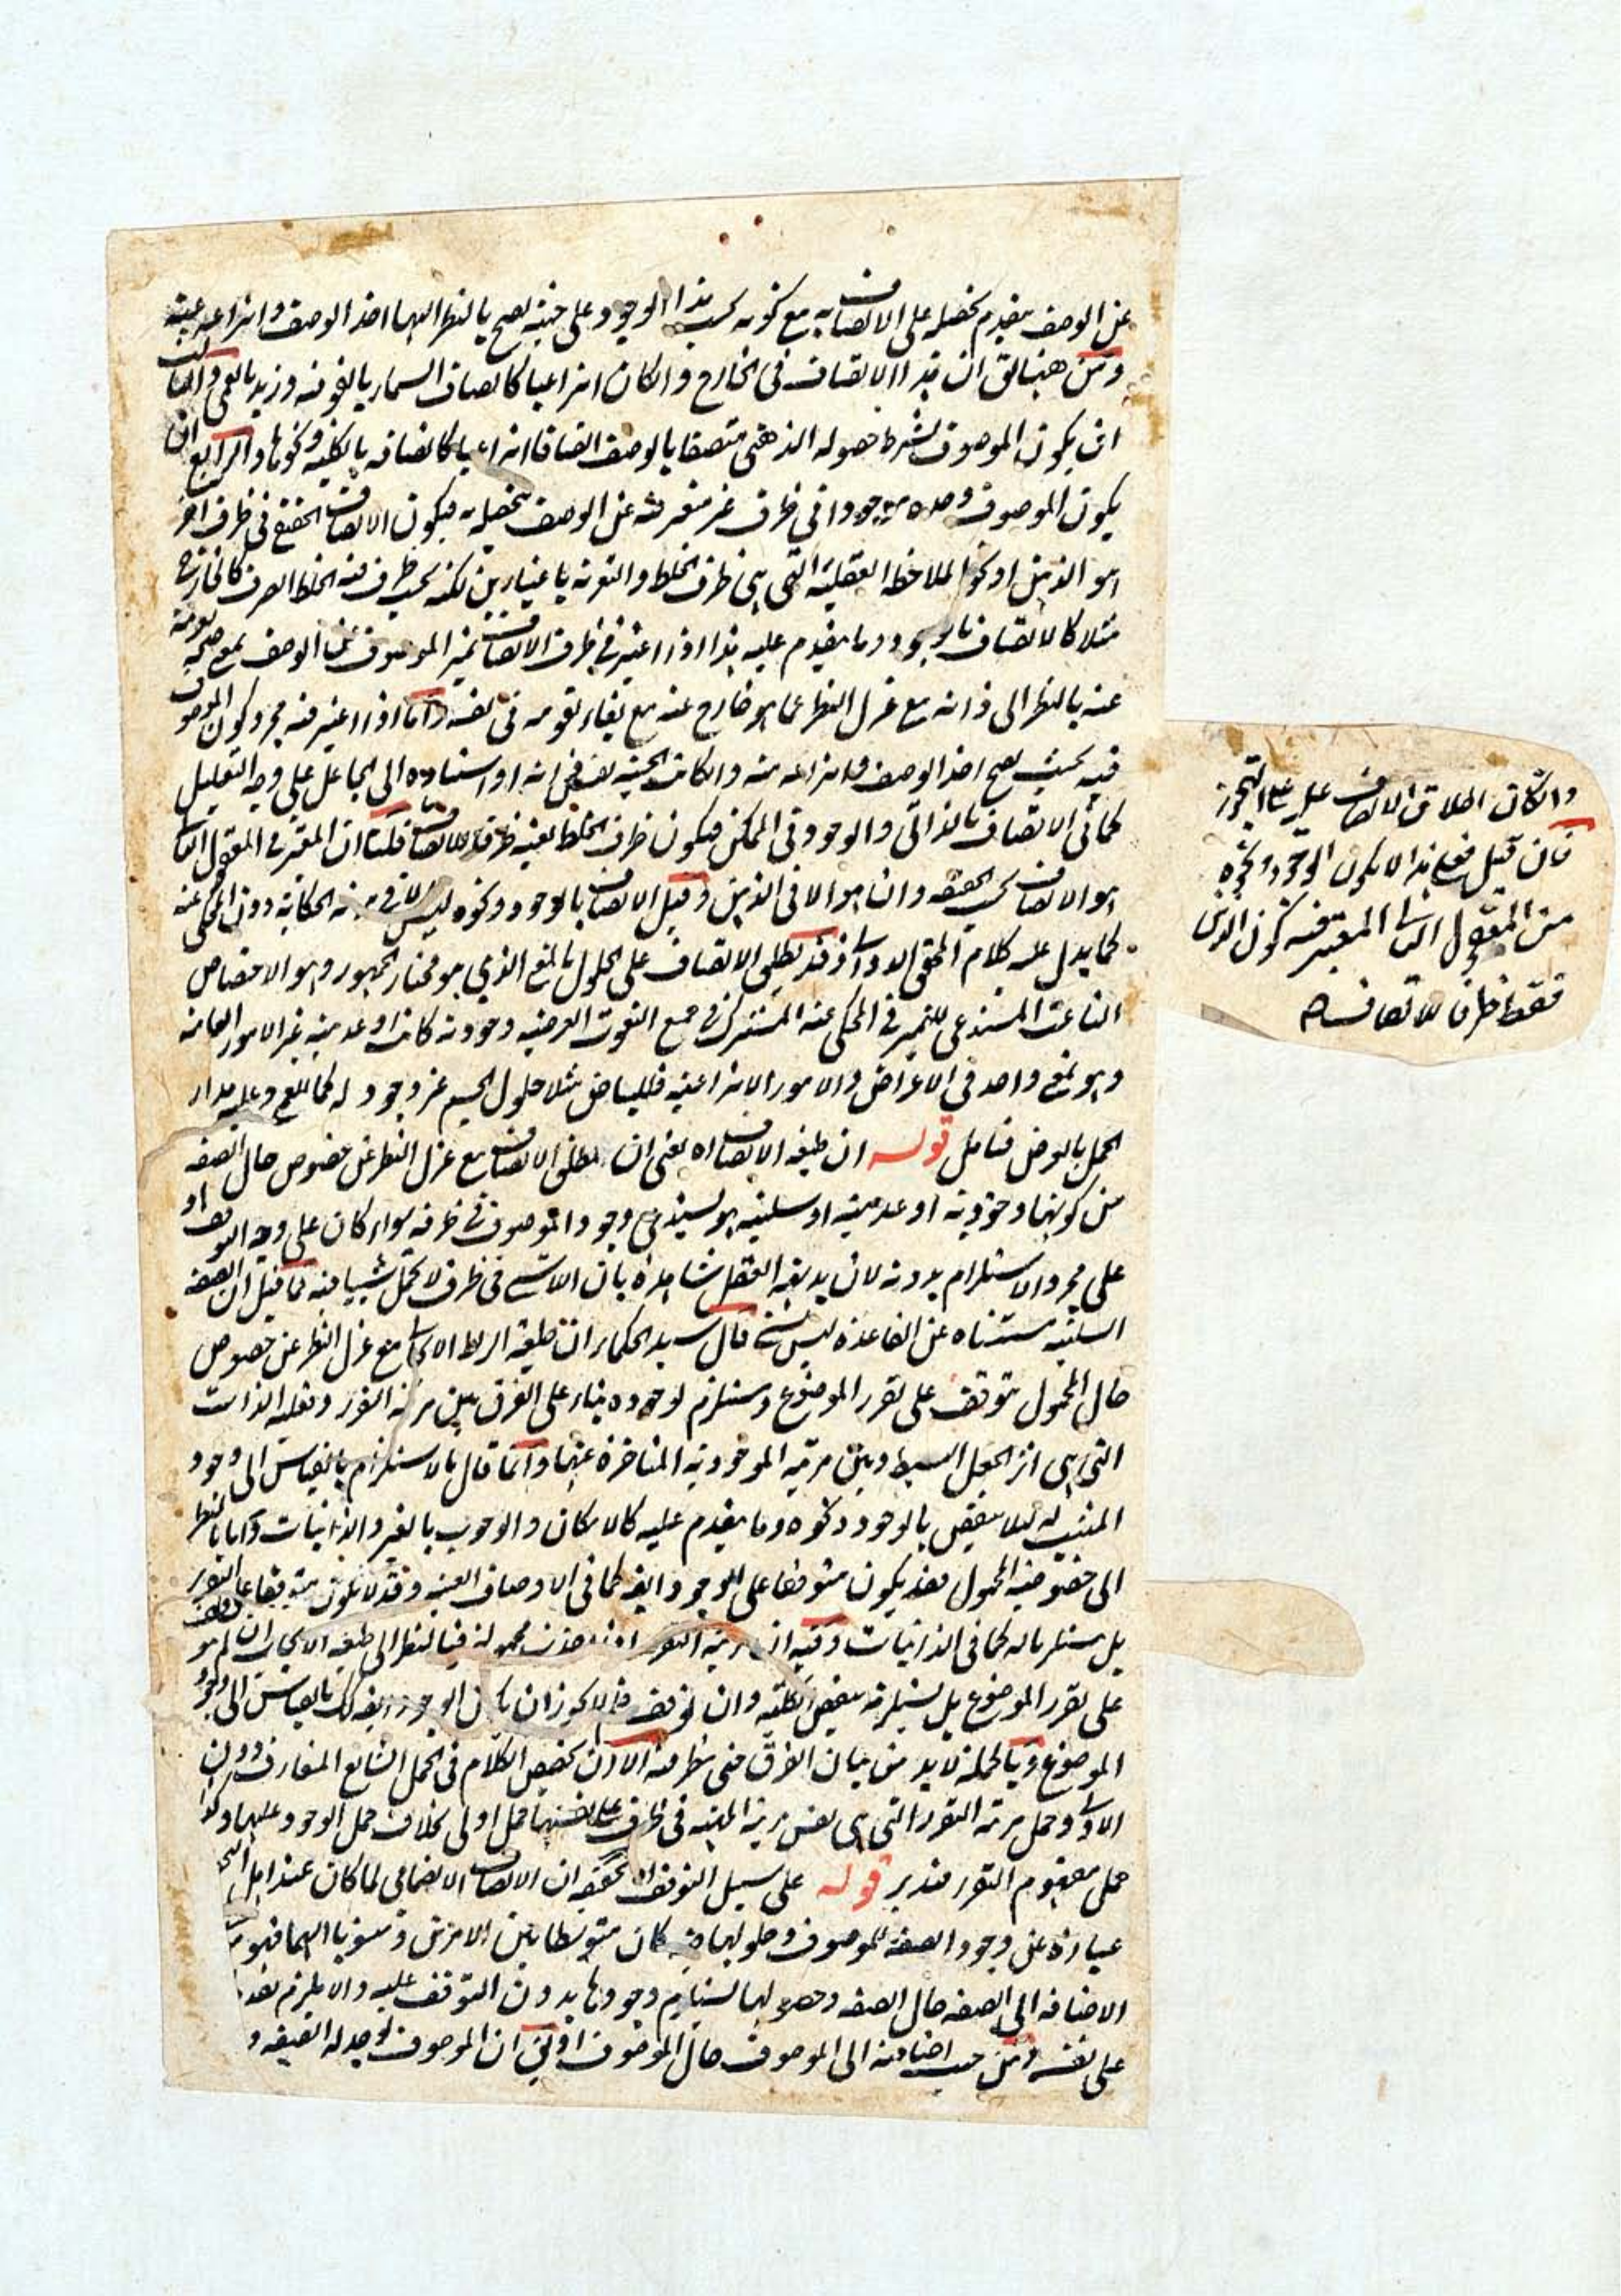 عن الوصف بتقدم تحصله على الاتصاف به مع كونه بحسب هذا الوجود على حيثية يصح بالنظر اليها اخذ الوصف وانتزاعه عنه
ومن ههنا يق ان هذا الاتصاف في الخارج وان كان انتزاعيا كاتصاف السماء بالفوقية وزيد بالعمى والثالث
ان يكون الموصوف بشرط حصوله الذهني متصفا بالوصف اتصافا انتزاعيا كاتصافه بالكلية ونحوها والرابع ان
يكون الموصوف وحده موجودا في ظرف غير متعر فيه عن الوصف بتحصله فيكون الاتصاف الحقيقي في ظرف اخر
هو الذهن او نحو الملاحظة العقلية التي هي ظرف الخلط والتعرية باعتبارين لكنه بحسب ظرف فيه الخلط الصرف كالخارج
مثلا كالاتصاف بالوجود وما يتقدم عليه هذا اذا اعتبر في ظرف الاتصاف تميز الموصوف عن الوصف بمعنى صحة تعريه
عنه بالنظر الى ذاته مع عزل النظر عما هو خارج عنه مع بقاء تقومه في نفسه واما اذا اعتبر فيه مجرد كون الموصوف
فيه بحيث يصح اخذ الوصف وانتزاعه منه وان كانت الحيثية نفس ذاته او استناده الى الجاعل على وجه التعليل
كما في الاتصاف بالذاتي والوجود في الممكن فيكون ظرف الخلط بعينه ظرفا للاتصاف قلت ان المعتبر في المعقول الثاني
هو الاتصاف بحسب الحقيقة وان هو الا في الذهن وقيل الاتصاف بالوجود ونحوه ليس الا في مرتبة الحكاية دون المحكى عنه
كما يدل عليه كلام المحقق الدواني وقد يطلق الاتصاف على الحلول بالمعنى الذي هو مختار الجمهور وهو الاختصاص
الناعت المستدعى للتميز في المحكى عنه المشترك في جميع النعوت العرضية وجودية كانت او عدمية غير الامور العامة
وهو بمعنى واحد في الاعراض والامور الانتزاعية فللبياض مثلا حلول الجسم غير وجود له كما للعمى وعليه مدار
الحمل بالعرض فتامل قوله ان طبيعة الاتصاف اه يعنى ان مطلق الاتصاف مع عزل النظر عن خصوص حال الصفة
من كونها وجودية او عدمية او سلبية هو يستدعى وجود الموصوف في ظرفه سواء كان على وجه التوقف او
على مجرد الاستلزام بدونه لان بديهة العقل شاهدة بان اللاشئ في ظرف لا يحمل شيئا فيه فما قيل ان الصفة
السلبية مستثناة عن القاعدة ليس بشئ قال سيد الحكماء ان طبيعة الربط الايجابي مع عزل النظر عن خصوص
حال المحمول تتوقف على تقرر الموضوع ويستلزم لوجوده بناء على الفرق بين مرتبة التقرر وفعلية الذات
التي هي اثر الجعل البسيط وبين مرتبة الموجودية المتاخرة عنها وانما قال بالاستلزام بالقياس الى وجود
المثبت له لئلا ينتقض بالوجود ونحوه وما يتقدم عليه كالامكان والوجوب بالغير والذاتيات واما بالنظر
الى خصوصية المحمول فقد يكون متوقفا على الوجود ايضا كما في الاوصاف العينية وقد لا يكون متوقفا على التقرر
بل مستلزما له كما في الذاتيات وفيه ان مرتبة التقرر اذا اخذت محمولة فبالنظر الى طبيعة الايجاب ان لم يتوقف
على تقرر الموضوع بل يستلزمه ينتقض الكلية وان توقف فلم لا يجوز ان يكون الوجود ايضا كك بالقياس الى وجود
الموضوع وبالجملة لا بد من بيان الفرق حتى ينظر فيه الا ان يخصص الكلام في الحمل الشايع المتعارف دون
الاولى وحمل مرتبة التقرر التي هي نفس مرتبة المهية في الظرف على نفسها حمل اولى بخلاف حمل الوجود عليها وكذا
حمل مفهوم التقرر فتدبر قوله على سبيل التوقف اه تحقيقه ان الاتصاف الانضمامي لما كان عند اهل
عبارة عن وجود الصفة للموصوف وحلولها فيه كان متوسطا بين الامرين ومنسوبا اليهما فهو
الاضافة الى الصفة حال الصفة وحصولها يستلزم وجودها بدون التوقف عليه والا يلزم تقدم
على نفسه ومن حيث اضافته الى الموصوف حال الموصوف اذ ان الموصوف يوجد له الصفة و
وان كان اطلاق الاتصاف عليه على التجوز
فان قيل فعلى هذا لا يكون الوجود ونحوه
من المعقول الثاني المعتبر فيه كون الذهن
فقط ظرفا للاتصاف اه